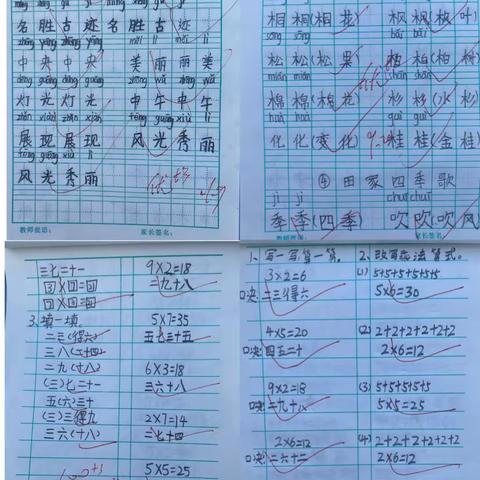 名胜古迹 名胜古迹
zhōng yāng zhōng yāng měi lì lì měi
中央中央 美丽丽美
dēng guāng dēng guāng zhōng wǔ zhōng wǔ
灯光灯光 中午中午
zhǎn xiàn zhǎn xiàn fēng guāng xiù lì
展现展现 风光秀丽
fēng guāng xiù lì
风光秀丽
优
教师批语: 家长签名:
桐桐(桐花) 枫枫(枫叶)
sōng sōng bǎi bǎi
松松(松果) 柏柏(柏树)
mián mián shān shān
棉棉(棉花) 杉杉(水杉)
huà huà guì guì
化化(变化) 桂桂(金桂)
④田家四季歌
jì jì chuī chuī
季季(四季) 吹吹(吹风)
教师批语: 家长签名:
三七二十一 9×2=18
3×7=21 二九十八
7×3=21
3.填一填. 5×7=35
二三(得六) 五七三十五
三八(二十四)
二九(十八) 6×3=18
(三)七二十一 三六十八
五(六)三十
(三)三得九 2×7=14
三六(十八) 二七十四
5×5=25
1、写一写,算一算。 2、改写乘法算式。
3×2=6 (1) 5+5+5+5+5+5
口诀:二三得六 5×6=30
4×5=20 (2) 2+2+2+2+2+2
口诀:四五二十 2×6=12
9×2=18 (3) 5+5+5+5+5
口诀:二九十八 5×5=25
2×6=12 (4) 2+2+2+2+2+2
口诀:二六十二 2×6=12